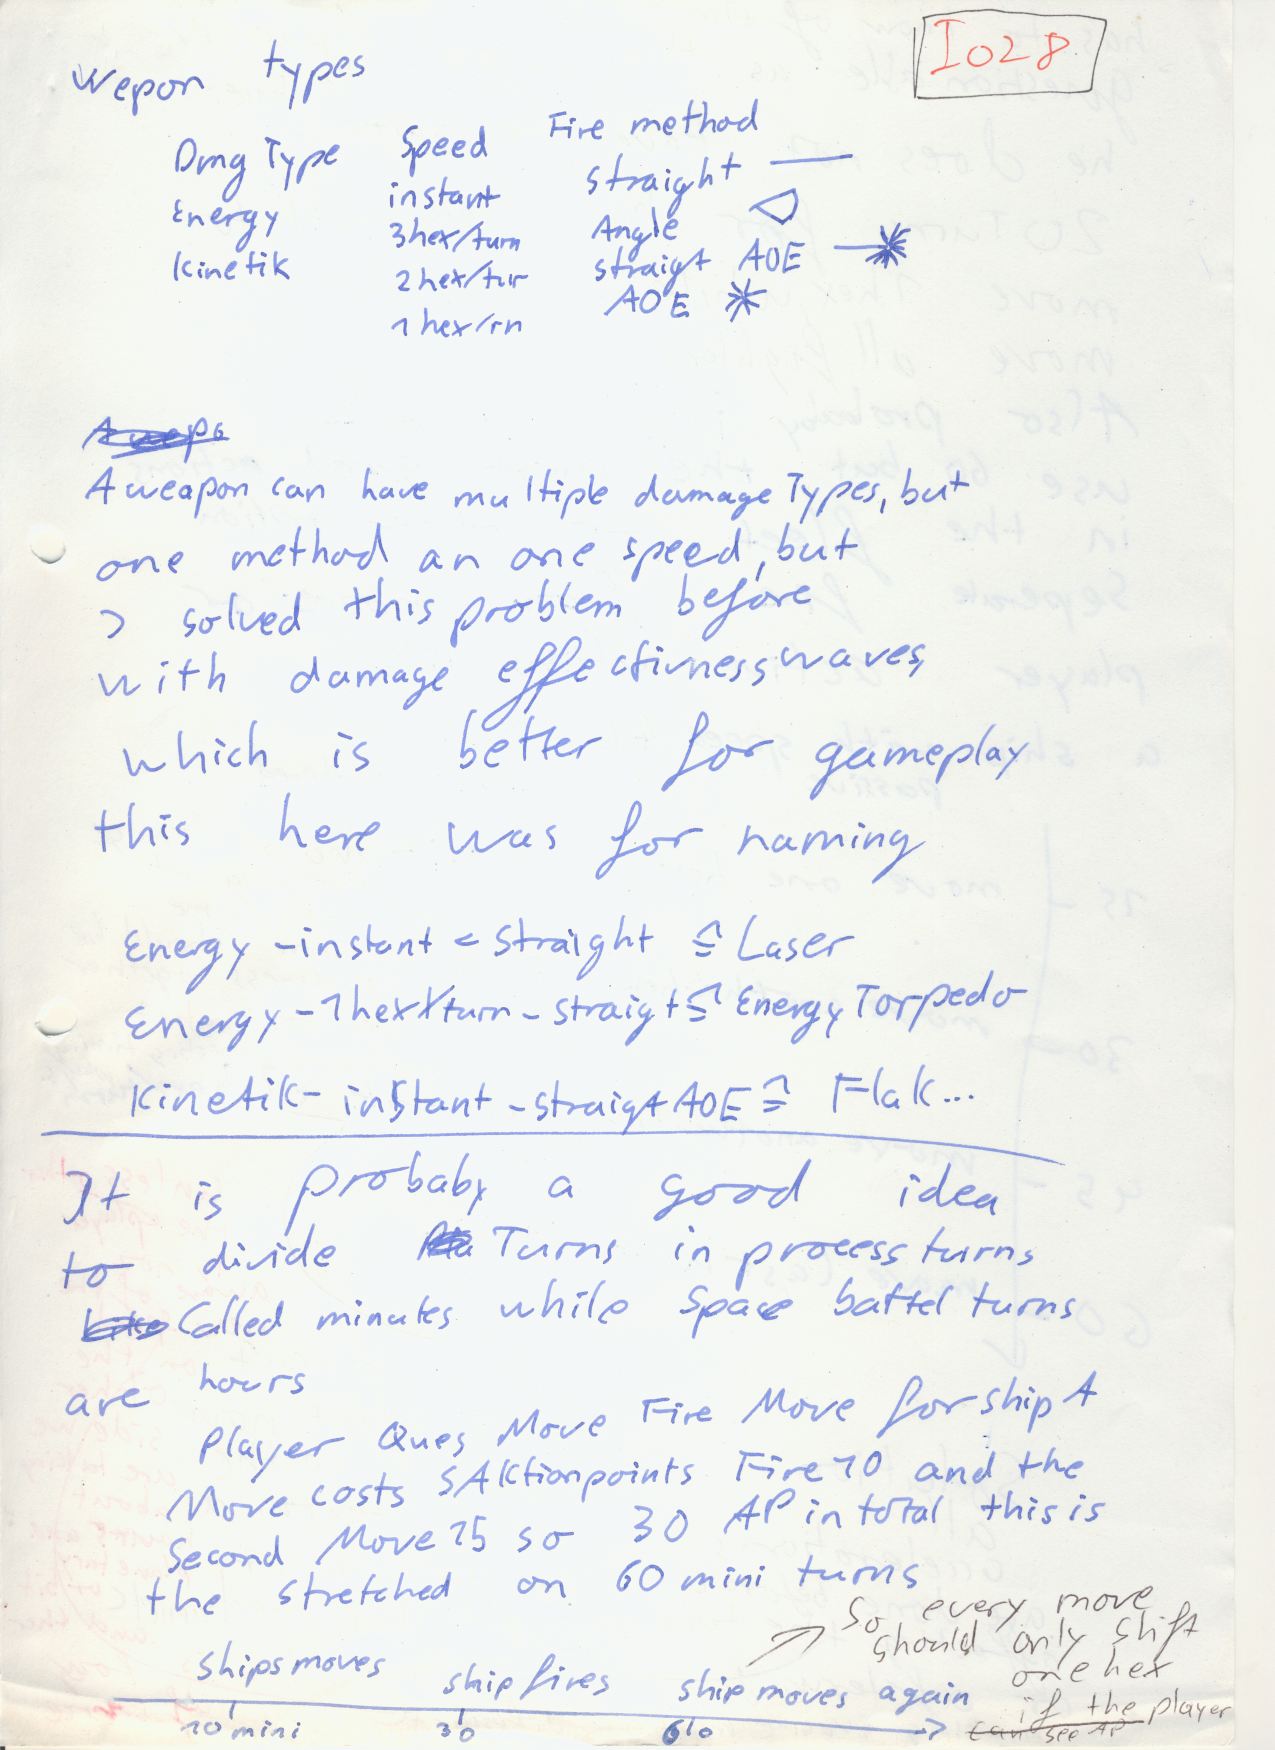 I028
Wepon types
Dmg Type Speed Fire method
Energy instant straight
Kinetik 3hex/turn Angle
2hex/tur straigt AOE
1hex/rn AOE
A weapon can have multiple damage Types, but
one method an one speed, but
I solved this problem before
with damage effectivness waves,
which is better for gameplay
this here was for naming
Energy - instant - Straight ≙ Laser
Energy - 1hex/turn - straigt ≙ Energy Torpedo
Kinetik - instant - straigt AOE ≙ Flak...
It is probaby a good idea
to divide Turns in process turns
Called minutes while Space battel turns
are hours
Player Ques Move Fire Move for ship A
Move costs 5 Aktionpoints Fire 10 and the
Second Move 15 so 30 AP in total this is
the stretched on 60 mini turns
So every move
should only shift
one hex
if the player
can see AP
Ships moves ship fires ship moves again
10 mini 30 60